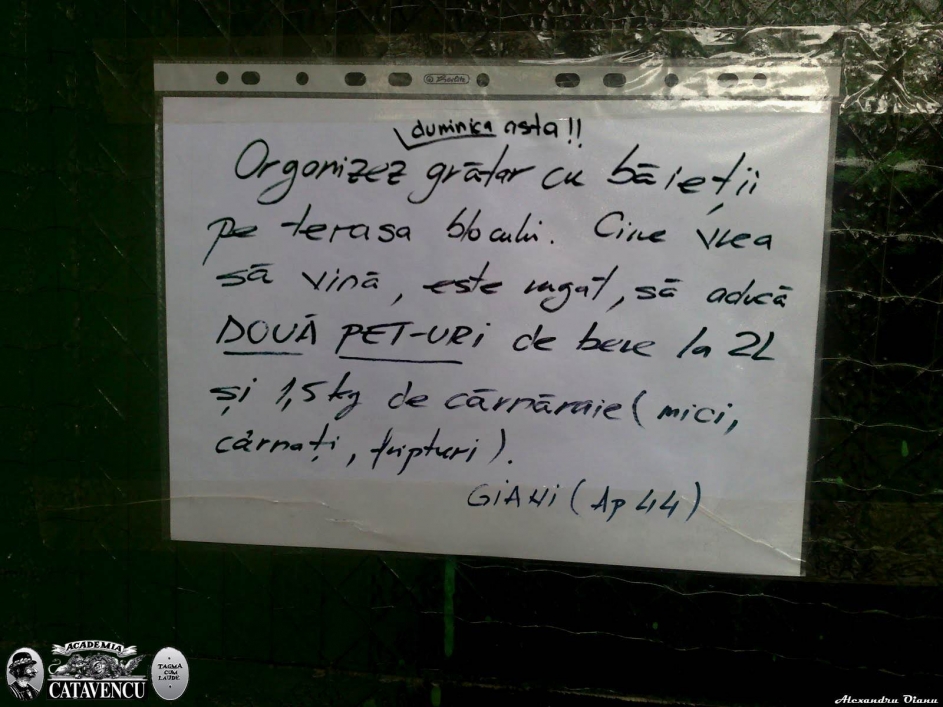 Herlitz
duminica asta!!
Organizez grătar cu băieții
pe terasa blocului. Cine vrea
să vină, este rugat, să aducă
DOUĂ PET-URI de bere la 2L
și 1,5 kg de cărnăraie (mici,
cârnați, fripturi).
GIANI (Ap 44)
ACADEMIA
CATAVENCU
TAGMA
CUM
LAUDE
Alexandru Oianu